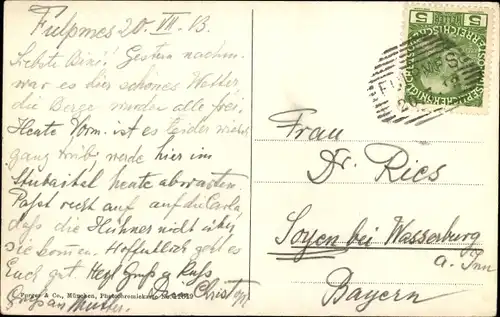 Fulpmes 20. VII. 13.
Liebste Bini! Gestern nachm.
war es hier schönes Wetter,
die Berge wurden alle frei.
Heute Vorm. ist es leider wieder
ganz trüb, werde hier im
Stubaital heute abwarten.
Passt recht auf auf die Carla,
daß die Hühner nicht über
sie komen. Hoffentlich geht es
Euch gut. Herzl. Gruß & Kuß
Christoph
Gruß an Mutter.
Purger & Co., München, Photochromiekarte
5 5
FULPMES
Frau
Dr. Ries
Soyen bei Wasserburg
a. Inn
Bayern